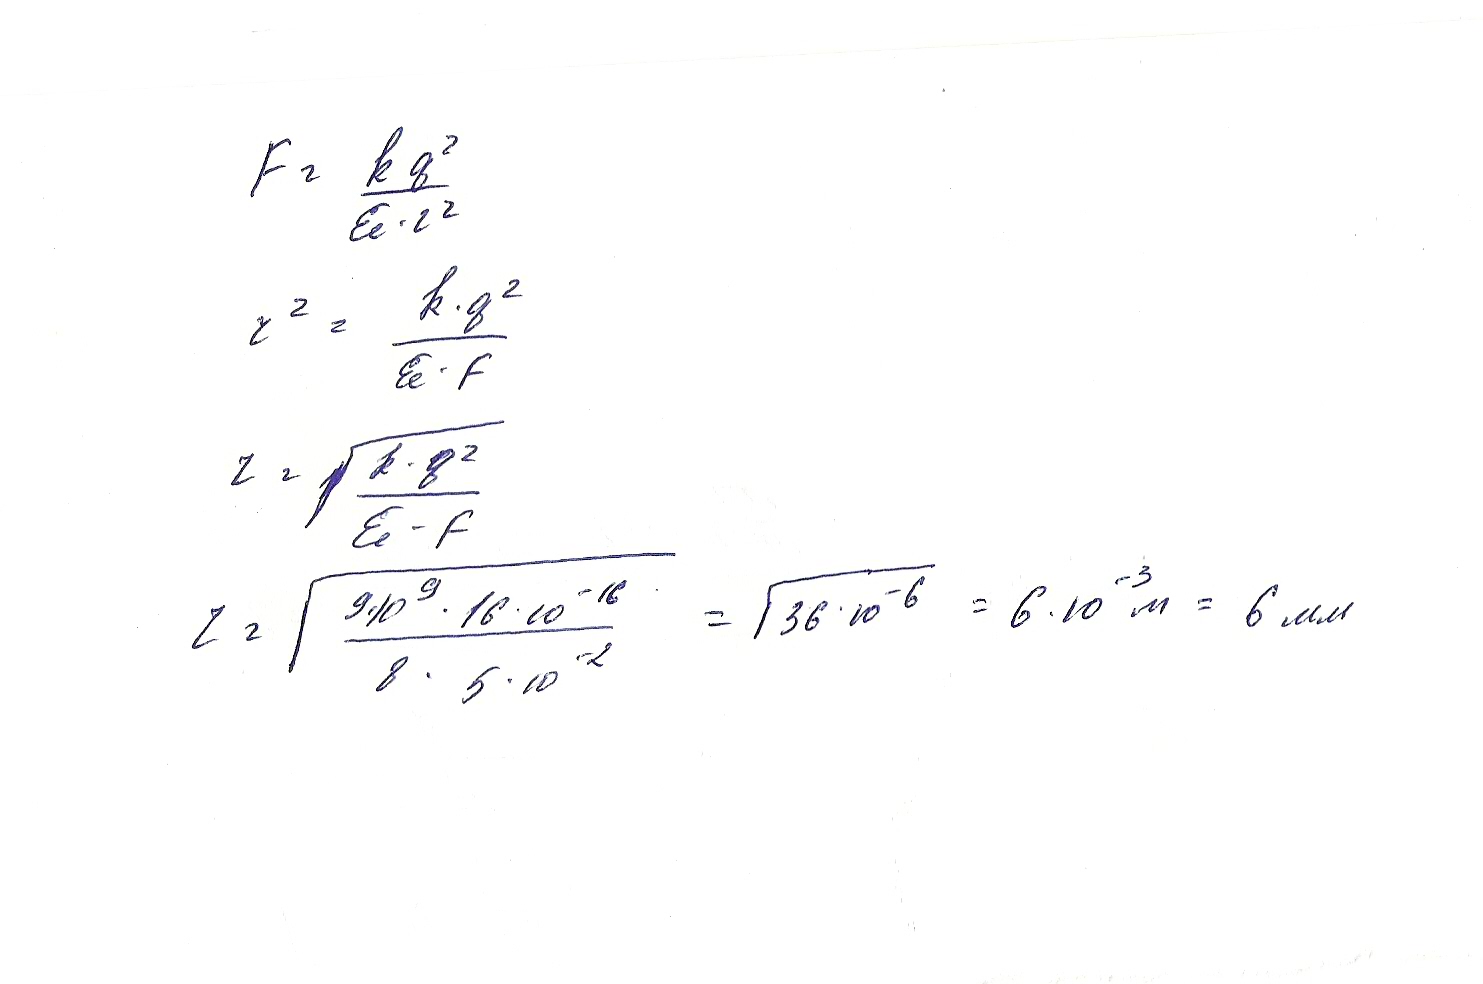 F = kq² / (ε · r²)
r² = k · q² / (ε · F)
r = √(k · q² / (ε · F))
r = √(9·10⁹ · 16 · 10⁻¹⁶ / (8 · 5 · 10⁻²)) = √(36 · 10⁻⁶) = 6 · 10⁻³ м = 6 мм